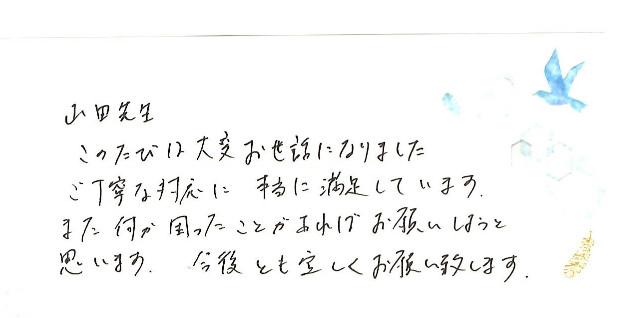 山田先生
このたびは大変お世話になりました
ご丁寧な対応に 本当に満足しています.
また何か困ったことがあればお願いしようと
思います. 今後とも宜しくお願い致します.